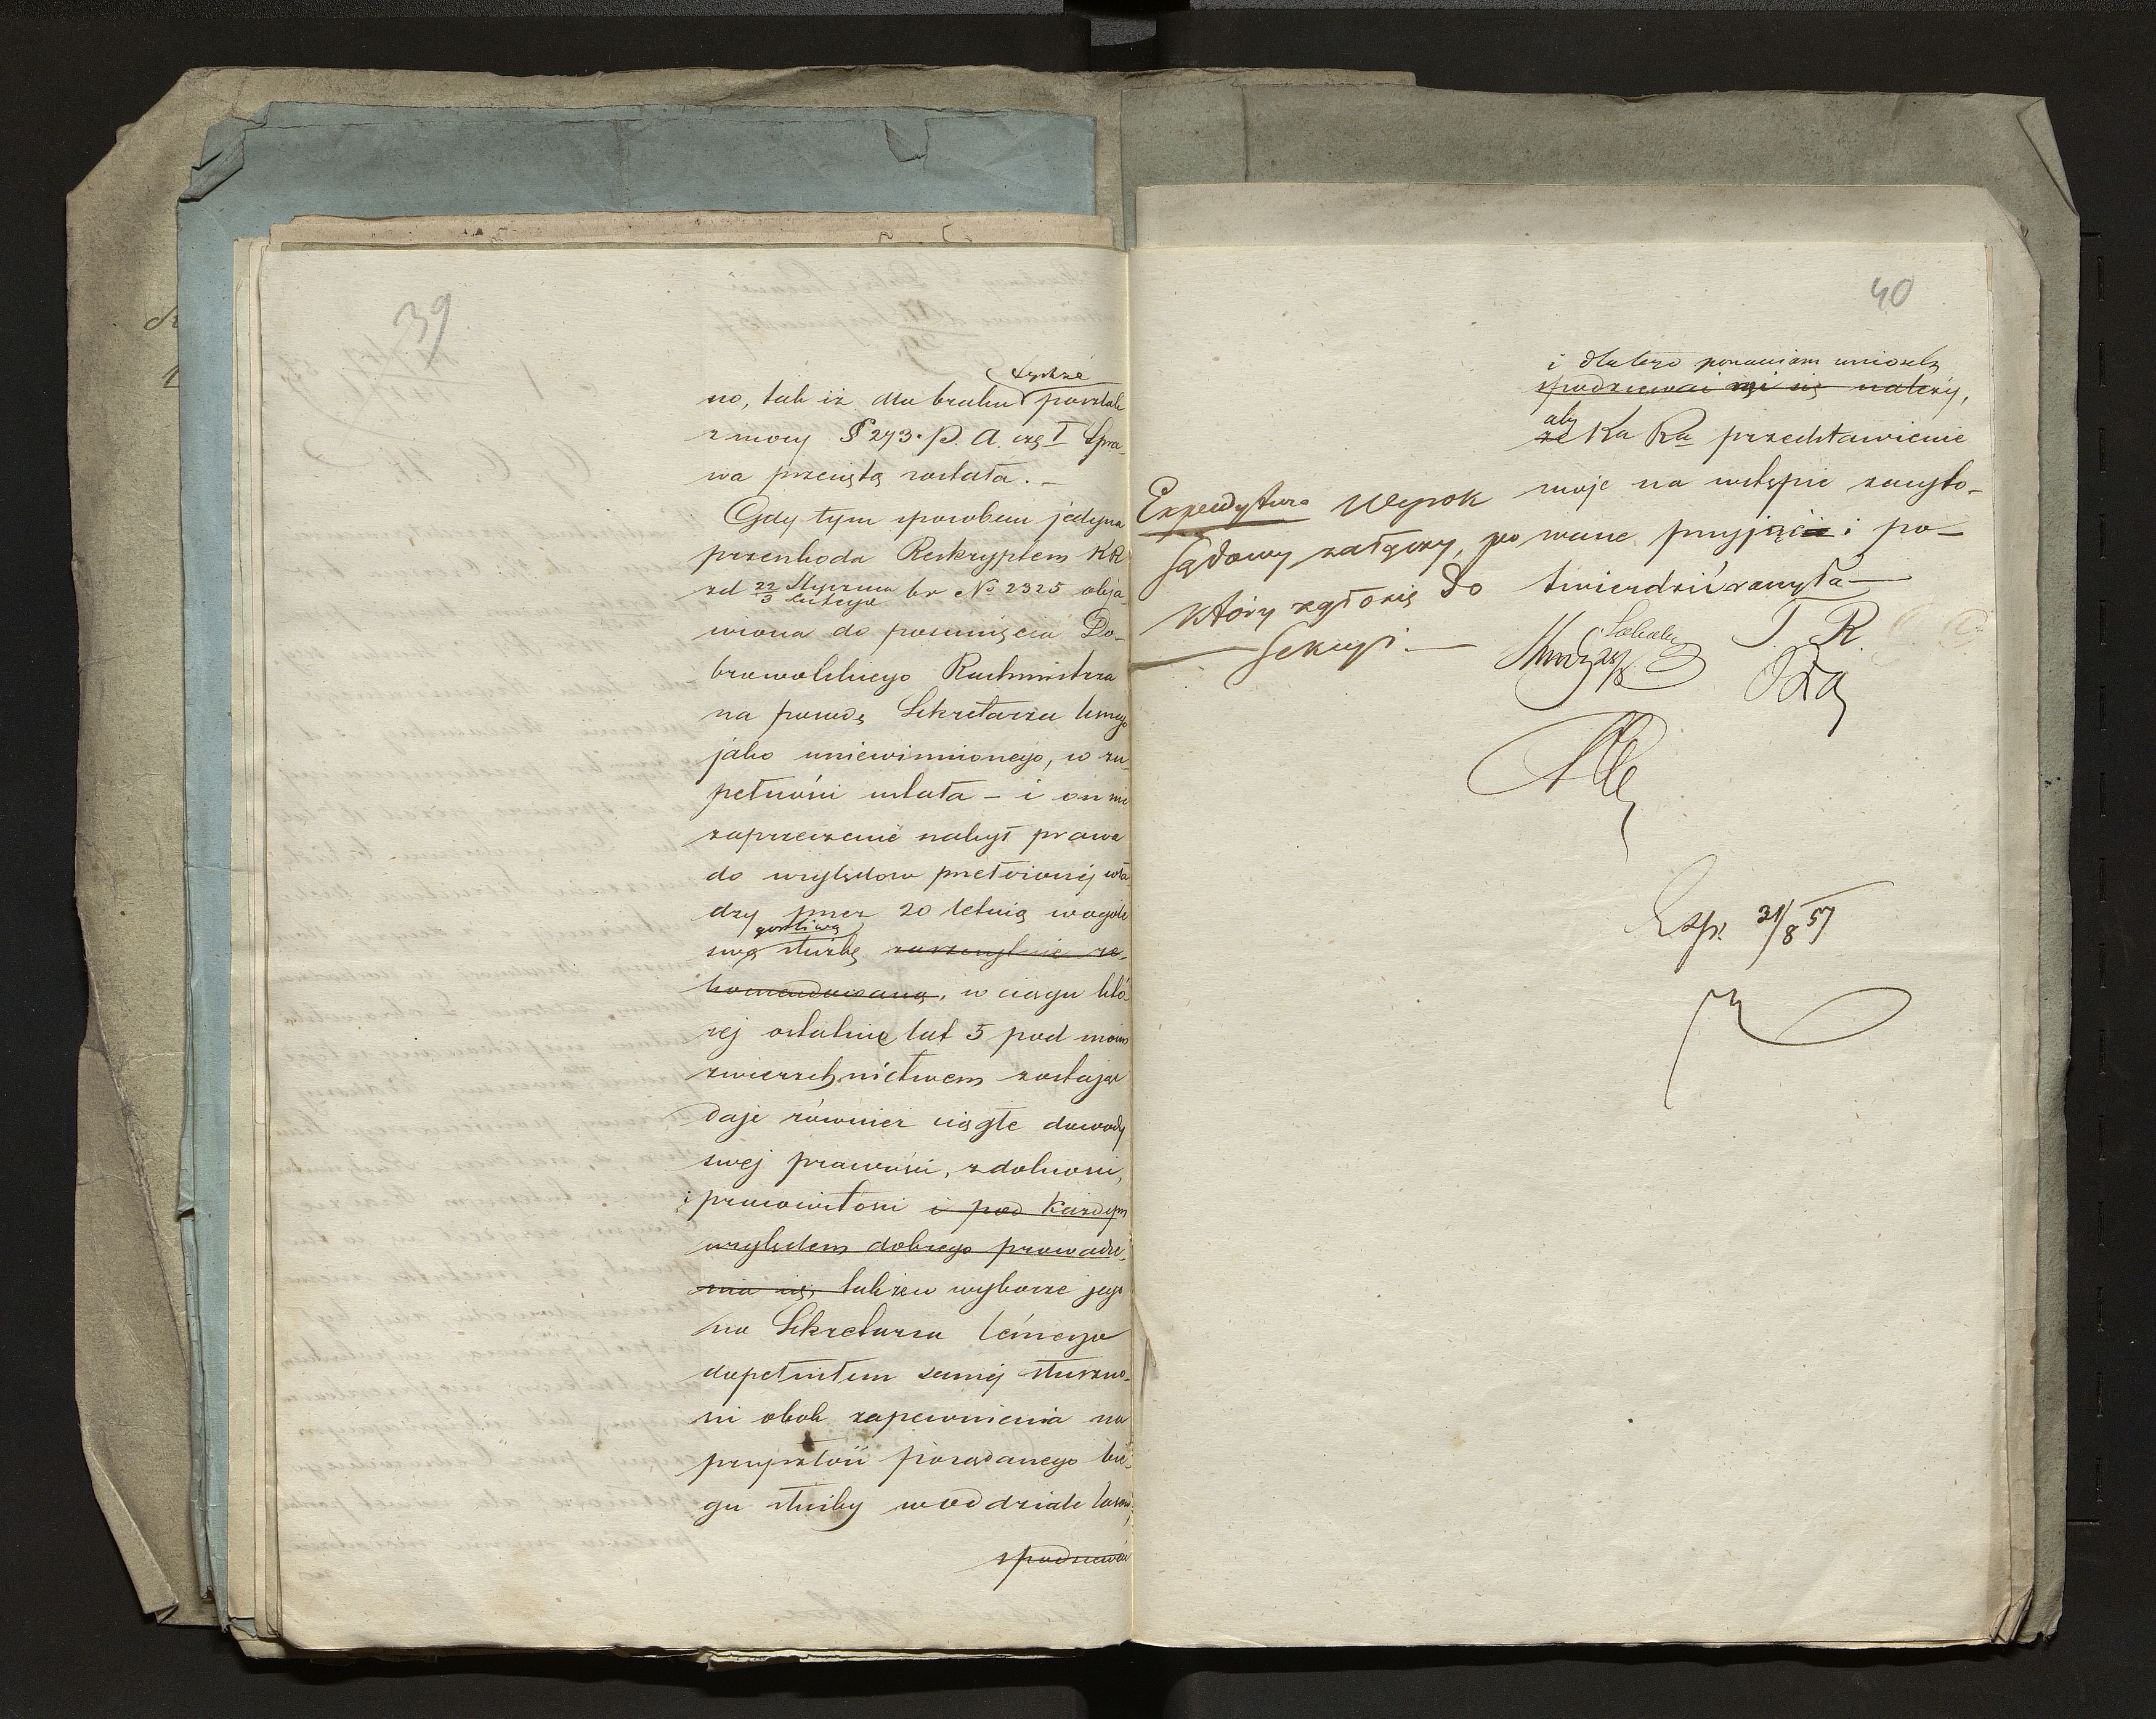 39
tychże
no, tak iż dla braku powstał
z mocy § 273. P. A. czę I Spra-
wa przeciętą została. –
Gdy tym sposobem jedyna
przeszkoda Reskryptem KR
zd 22 Stycznia / 3 Lutego br No 2325 obja-
wiona do posunięcia Do-
browolskiego Rachmistrza
na posadę Sekretarza leśnego
jako uniewinnionego, w zu-
pełności ustała – i on nie
zaprzeczenie nabył prawa
do względow przełożonéj wła-
dzy przez 20 letnią wogóle
gorliwą
swą służbę zaszczytnie re-
komendowaną, w ciągu któ-
rej ostatnie lat 5 pod moim
zwierzchnictwem zostając
daje również ciągłe dowody
swej prawości, zdolności,
i pracowitości i pod każdym
względem dobrego prowadze-
nia się, takżew wyborze jego
na Sekretarza leśnego
dopełniłem samej słuszno-
ści obok zapewnienia na
przyszłość pożądanego bie-
gu służby w oddziale lasow,
spodziewać
40
i dlatego ponawiam wniosek
spodziewać mi się należy,
aby
że Ka Ra przedstawienie
moje na wstępie zacyto-
wane przyjąć i po-
twierdzić raczyła –
Expedytura Wyrok
sądowy załączy, po
który zgłosię do
Sekcyi. –
T. R.
Exp. 31/8 57